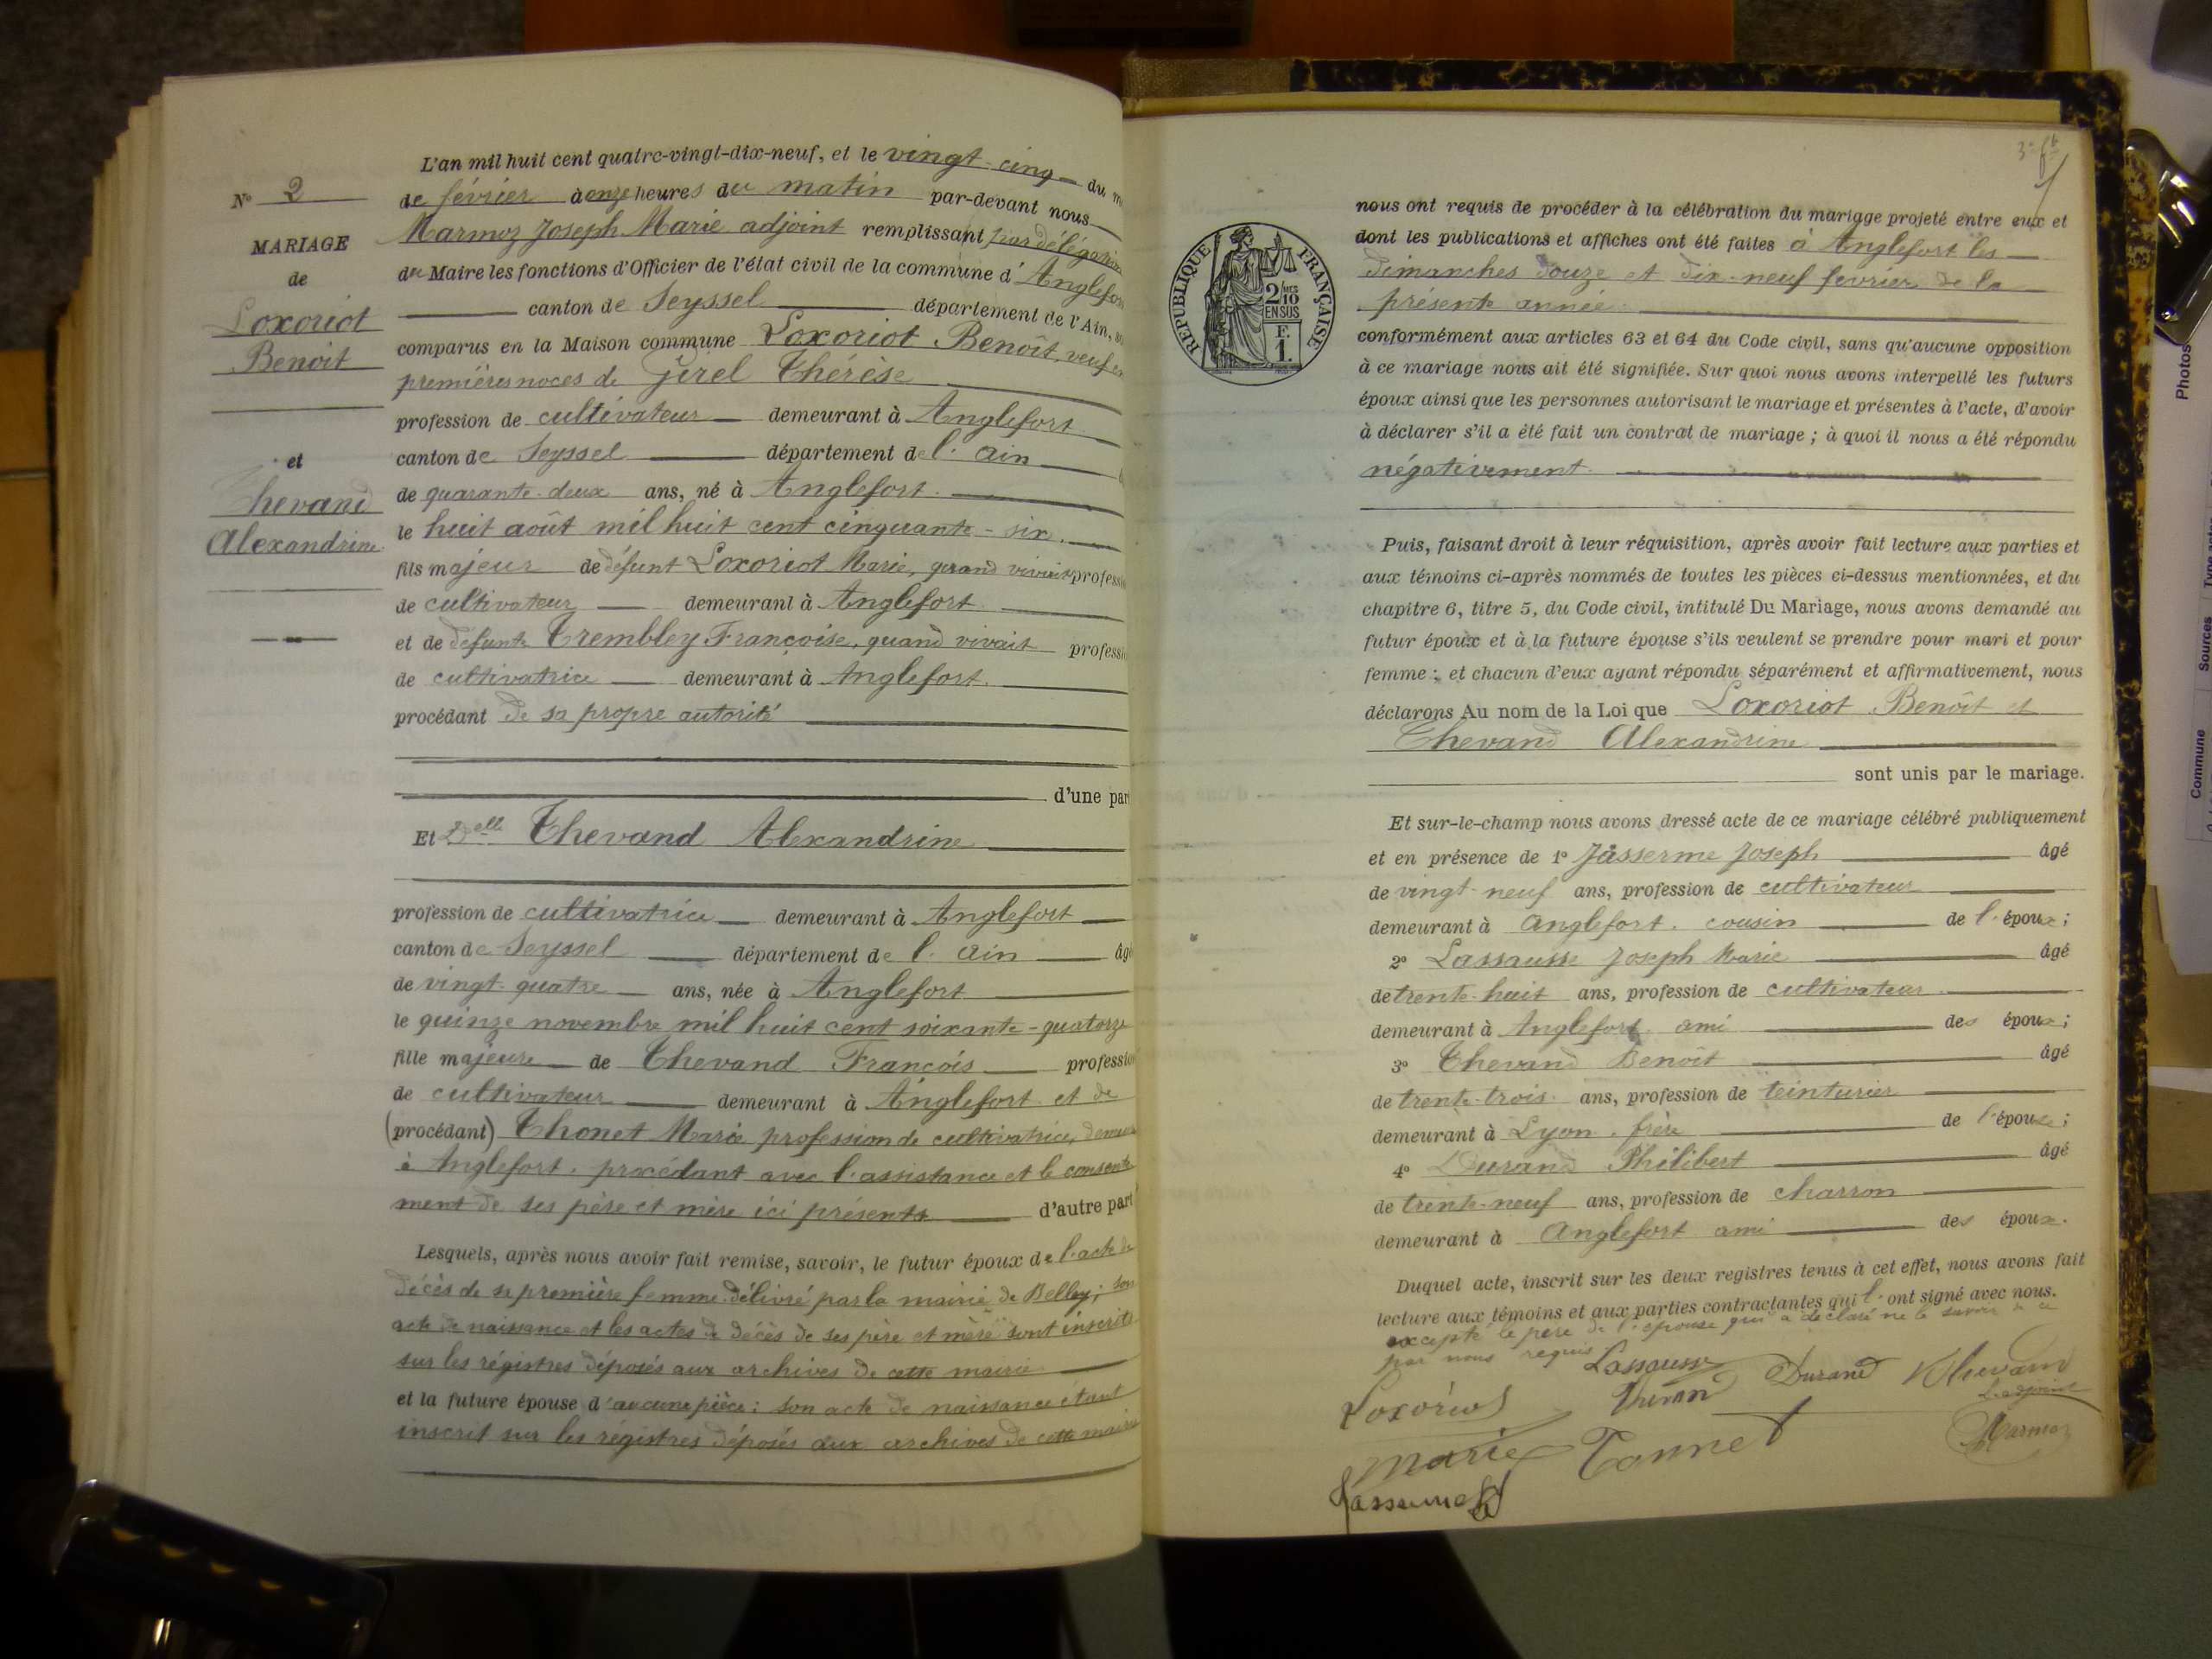 N° 2
MARIAGE
de
Loxoriot
Benoit
et
Thevand
Alexandrine
L'an mil huit cent quatre-vingt-dix-neuf, et le vingt-cinq du
de février à onze heures du matin par-devant nous
Marmoz Joseph Marie adjoint remplissant par délégation
du Maire les fonctions d'Officier de l'état civil de la commune d'Anglefort
canton de Seyssel département de l'Ain,
comparus en la Maison commune Loxoriot Benoît, veuf en
premières noces de Girel Thérèse
profession de cultivateur demeurant à Anglefort
canton de Seyssel département de l'Ain
de quarante-deux ans, né à Anglefort
le huit août mil huit cent cinquante-six.
fils majeur de défunt Loxoriot Marie, quand vivait profession
de cultivateur demeurant à Anglefort
et de défunte Trembley Françoise, quand vivait profession
de cultivatrice demeurant à Anglefort.
procédant de sa propre autorité
d'une part
Et Delle Thevand Alexandrine
profession de cultivatrice demeurant à Anglefort
canton de Seyssel département de l'Ain âgé
de vingt-quatre ans, née à Anglefort
le quinze novembre mil huit cent soixante-quatorze
fille majeure de Thevand François profession
de cultivateur demeurant à Anglefort et de
(procédant) Thonet Marie profession de cultivatrice, demeur
à Anglefort, procédant avec l'assistance et le consente
ment de ses père et mère ici présents d'autre part
Lesquels, après nous avoir fait remise, savoir, le futur époux de l'acte de
décès de sa première femme délivré par la mairie de Belley; son
acte de naissance et les actes de décès de ses père et mère sont inscrits
sur les régistres déposés aux archives de cette mairie
et la future épouse d'aucune pièce; son acte de naissance étant
inscrit sur les régistres déposés aux archives de cette mairie
3e ft
RÉPUBLIQUE FRANÇAISE
2/10 EN SUS
F.
1.
nous ont requis de procéder à la célébration du mariage projeté entre eux et
dont les publications et affiches ont été faites à Anglefort les
dimanches douze et dix-neuf février de la
présente année
conformément aux articles 63 et 64 du Code civil, sans qu'aucune opposition
à ce mariage nous ait été signifiée. Sur quoi nous avons interpellé les futurs
époux ainsi que les personnes autorisant le mariage et présentes à l'acte, d'avoir
à déclarer s'il a été fait un contrat de mariage ; à quoi il nous a été répondu
négativement.
Puis, faisant droit à leur réquisition, après avoir fait lecture aux parties et
aux témoins ci-après nommés de toutes les pièces ci-dessus mentionnées, et du
chapitre 6, titre 5, du Code civil, intitulé Du Mariage, nous avons demandé au
futur époux et à la future épouse s'ils veulent se prendre pour mari et pour
femme ; et chacun d'eux ayant répondu séparément et affirmativement, nous
déclarons Au nom de la Loi que Loxoriot Benoît et
Thevand Alexandrine
sont unis par le mariage.
Et sur-le-champ nous avons dressé acte de ce mariage célébré publiquement
et en présence de 1° Jasserme Joseph âgé
de vingt-neuf ans, profession de cultivateur
demeurant à Anglefort. cousin de l'époux;
2° Lassausse Joseph Marie âgé
de trente-huit ans, profession de cultivateur
demeurant à Anglefort ami des époux;
3° Thevand Benoît âgé
de trente-trois ans, profession de teinturier
demeurant à Lyon, frère de l'épouse;
4° Durand Philibert âgé
de trente-neuf ans, profession de charron
demeurant à Anglefort ami des époux.
Duquel acte, inscrit sur les deux registres tenus à cet effet, nous avons fait
lecture aux témoins et aux parties contractantes qui l'ont signé avec nous.
excepté le père de l'épouse qui a déclaré ne le savoir de ce
par nous requis
Lassausse Durand Thevand
L'adjoint
Loxoriot
Marmoz
Marie Tonnet
Jasserme
Photos
Type actes
Sources
Commune